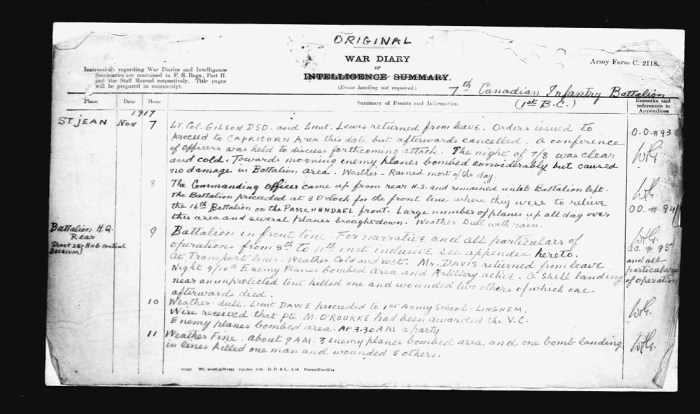 ORIGINAL
WAR DIARY
OF
INTELLIGENCE SUMMARY.
(Erase heading not required.)
Army Form C. 2118.
Instructions regarding War Diaries and Intelligence
Summaries are contained in F. S. Regs., Part II.
and the Staff Manual respectively. Title pages
will be prepared in manuscript.
7th Canadian Infantry Battalion
(1st B.C.)
Place Date Hour Summary of Events and Information Remarks and
references to
Appendices
1917
ST JEAN Nov 7 Lt. Col. GILSON DSO. and Lieut. Lewis returned from leave. Orders issued to
proceed to CAPRICORN Area this date but afterwards cancelled. A conference
of officers was held to discuss forthcoming attack. The night of 7/8 was clear
and cold. Towards morning enemy planes bombed considerably but caused
no damage in Battalion area. Weather - Rained most of the day.
O.O. #93
8 The Commanding Officer came up from rear H.Q. and remained until Battalion left.
The Battalion proceeded at 8 O'clock for the front line where they were to relieve
the 16th Battalion on the PASSCHENDAEL front. Large number of planes up all day over
this area and several planes brought down. Weather Dull with rain.
OO. #94
Battalion H.Q.
Rear
9 Battalion in front line. For narrative and all particulars of
operations from 8th to 11th inst inclusive see appendix hereto.
At Transport lines. Weather Cold and wet. Mr. DAVIS returned from leave
Night 9/10th Enemy Planes bombed area and Artillery active. A shell landing
near an unprotected tent killed one and wounded two others of which one
afterwards died.
OO. #95
and all
particulars
of operation
10 Weather - dull. Lieut DAWE proceeded to 1st Army School - LINGHEM.
Wire received that Pte. M O'ROURKE had been awarded the V.C.
Enemy planes bombed area At 3.30 AM a party
11 Weather Fine. about 9 A.M. 3 enemy planes bombed area and one bomb landing
in lines killed one man and wounded 5 others.